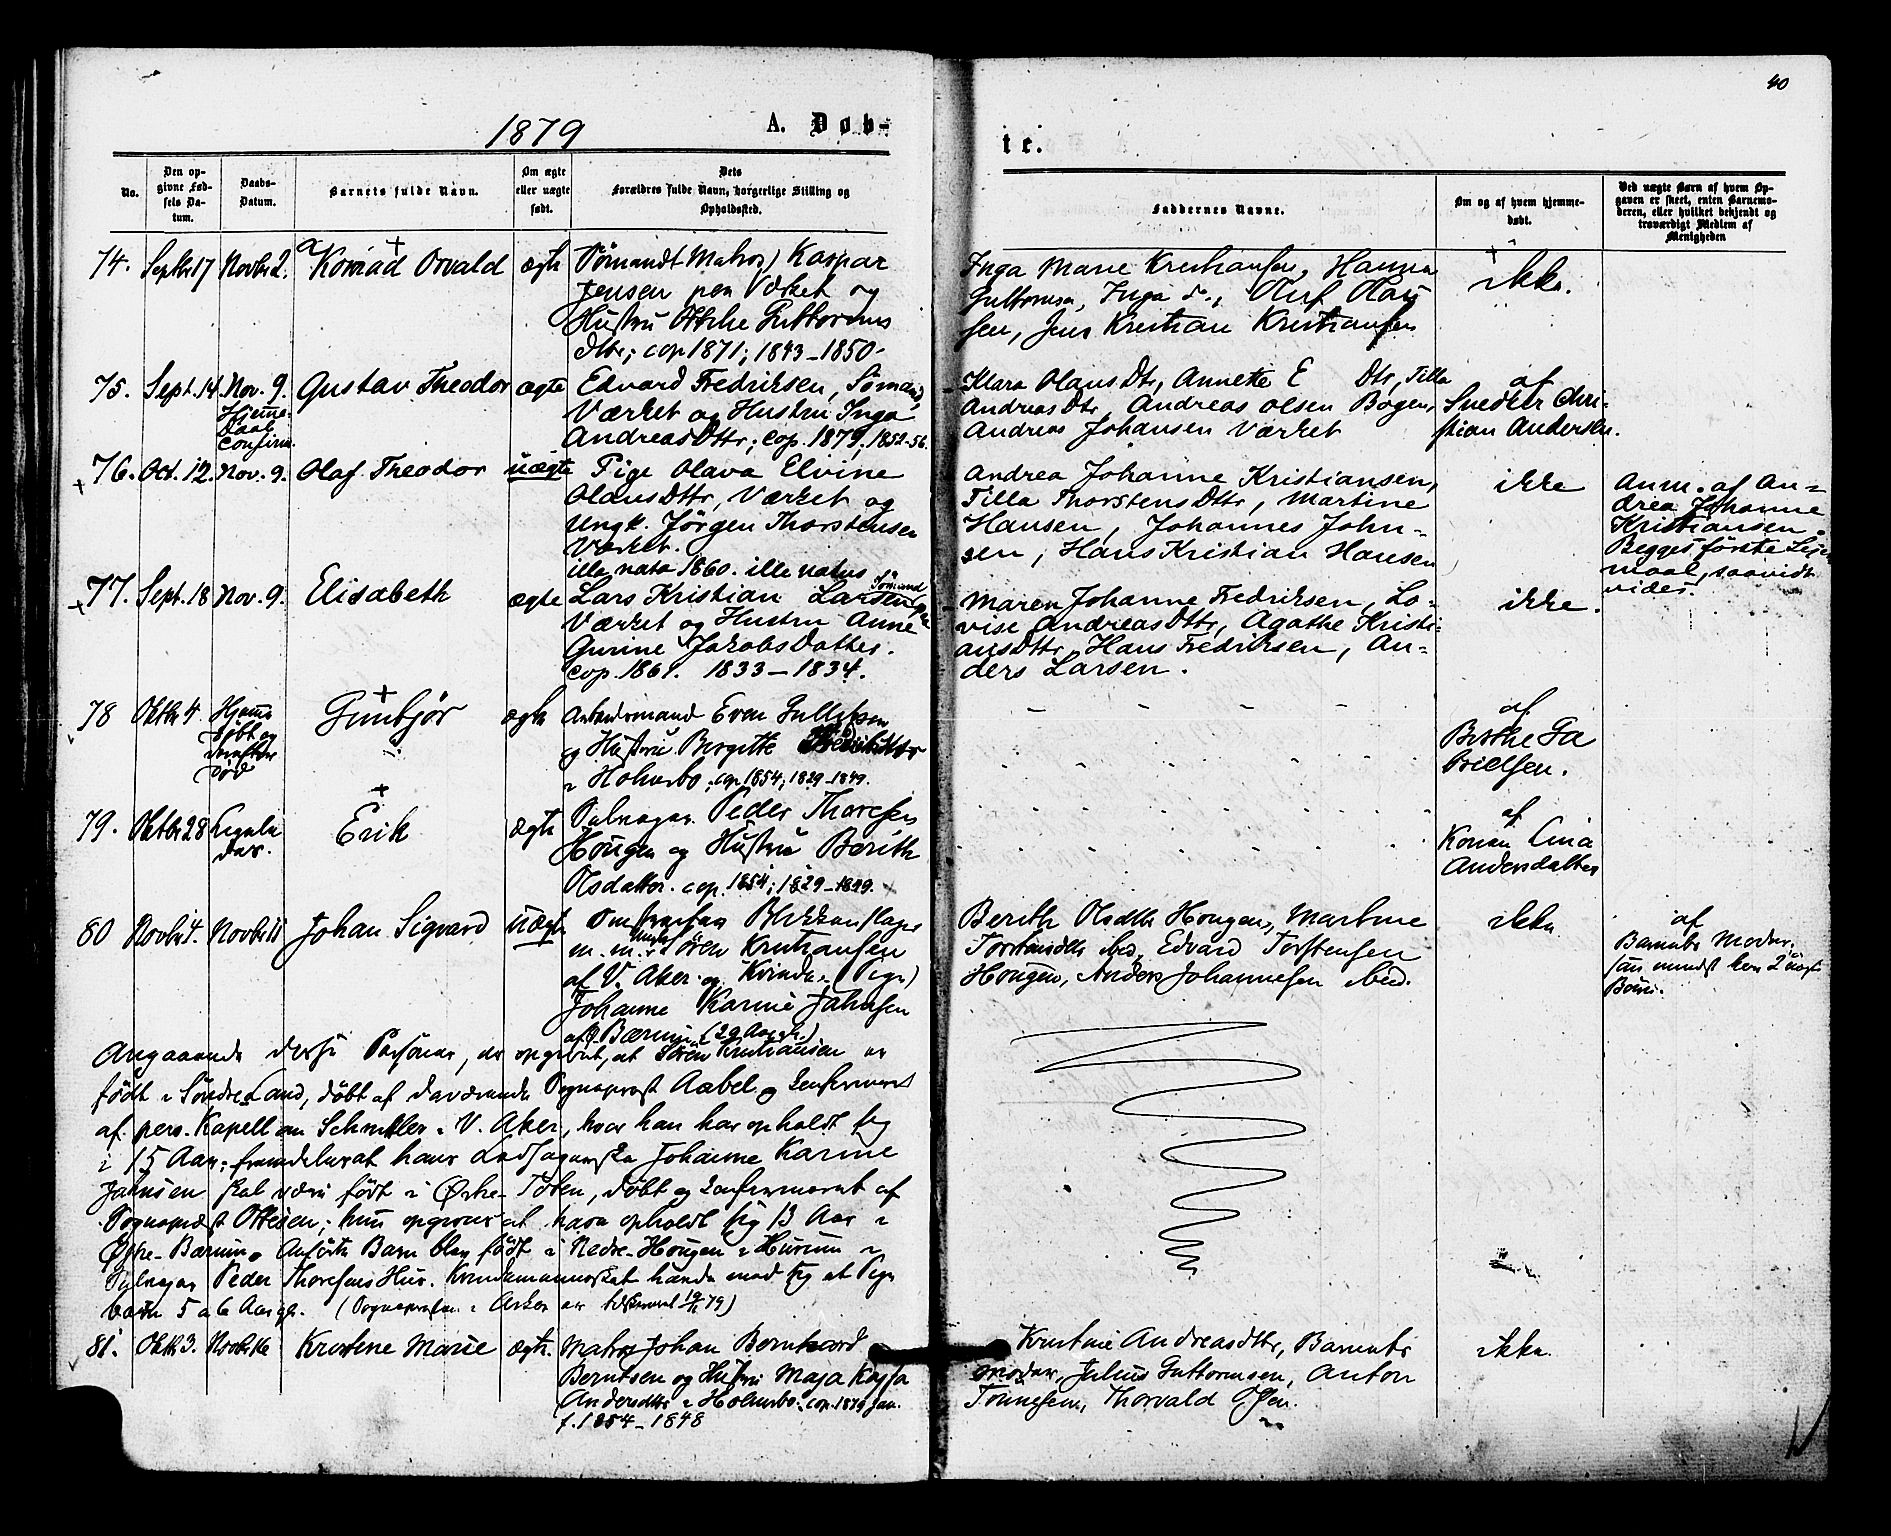 40
1879
A. Døb-
te.
No.
Den op-
givne Fød-
sels Da-
tum.
Daabs-
Datum.
Barnets fulde Navn.
Om ægte
eller uægte
født.
Dets
Forældres fulde Navn, borgerlige Stilling og
Opholdssted.
Faddernes Navne.
Om og af hvem hjemme-
døbt.
Ved uægte Børn af hvem Op-
gaven er skeet, enten Barnemo-
deren, eller hvilket bekjendt og
troværdigt Medlem af
Menigheden
74. Septbr 17 Novbr 2. Konrad Osvald ægte Sømand (Matros) Kaspar
Jensen paa Værket og
Hustru Guttorms
dtr; cop 1871; 1843-1850.
Inga Marie Kristiansen, Hanna
Guttormsen, Inga do., Oluf Olau
sen, Jens Kristian Kristiansen
ikke.
75. Sept. 14. Nov. 9. Gustav Theodor ægte Edvard Fredriksen, Sømand,
Hjemme-
daab
confirm.
Værket og Hustru Inga
AndreasDttr; cop. 1879; 1852-56.
Klara OlausDtr, Annette E Dtr, Tilla
AndreasDtr, Andreas Olsen Bogen,
Andreas Johansen Værket
af
Snedker Chri-
stian Andersen.
76. Oct. 12. Nov. 9. Olaf Theodor uægte Pige Olava Elvine
OlausDttr, Værket og
Ungk. Jørgen Thorstensen
Værket.
illa nata 1860. ille natus
Andrea Johanne Kristiansen,
Tilla ThorstensDttr, Martine
Hansen, Johannes John-
sen, Hans Kristian Hansen
ikke
Anm. af An-
drea Johanne
Kristiansen.
Begges første Leier-
maal, saavidt
vides.
77. Sept. 18 Nov. 9. Elisabeth ægte Lars Kristian Larsen Sømand
Værket og Hustru Anne
Gurine Jakobsdatter.
Cop. 1861. 1833-1834.
Maren Johanne Fredriksen, Lo-
vise AndreasDttr, Agathe Kristi-
ansDttr, Hans Fredriksen, An-
ders Larsen.
ikke.
78 Oktbr 4. Hjemme
døbt og
derefter
død
Gunbjør ægte Arbeidsmand Even Gulliksen
og Hustru Birgitte
i Holmsbo; cop. 1854; 1829-1849.
af
Berthe Ga
brielsen.
79. Oktbr 28 Ligeledes.
Erik ægte Selveier Peder Thoresen
Hougen og Hustru Berith
Olsdatter. cop. 1854; 1829-1849.
af
Konen Lina
Andersdatter
80 Novbr 4. Novbr 11 Johan Sigvard uægte Omstreifer Blikkenslager
m. m. Ungk. Søren Kristiansen
af V. Aker og Kvinden (Pige)
Johanne Karine Jahnsen
af Ø. Bærum (29 Aar gl.)
Berith Olsdtr Hougen, Martine
Torstensdtr ibid, Edvard Torstensen
Hougen, Anders Johannesen ibid.
ikke
af
Barnets Moder.
har mindst havt 2 uægte
Børn.
Angaaende disse Personer, er opgivet, at Søren Kristiansen er
født i Søndre Land, døbt af daværende Sogneprest Aabel og konfirmeret
af pers. Kapellan Schnitler i V. Aker, hvor han har opholdt sig
i 15 Aar; fremdeles at hans Ledsagerske Johanne Karine
Jahnsen skal være født i Østre-Toten, døbt og konfirmeret af
Sogneprest Ottesen; hun opgives at have opholdt sig 13 Aar i
Østre-Bærum. Anførte Barn blev født i Nedre-Hougen i Hurum i
Selveier Peder Thoresens Hus. Kvindemennesket havde med sig et Pige
barn 5 a 6 Aar gl. (Sognepresten i Asker er tilskrevet 19/11 79)
81. Oktb 3. Novbr 16 Kristine Marie ægte. Matros Johan Berntward
Berntsen og Hustru Maja Kajsa
Andersdtr i Holmsbo. cop. 1879 jan.
f. 1854-1848
Kristine Andreasdtr, Barnets
Moder, Julius Guttormsen, Anton
Tønnesen, Thorvald Olsen.
ikke.